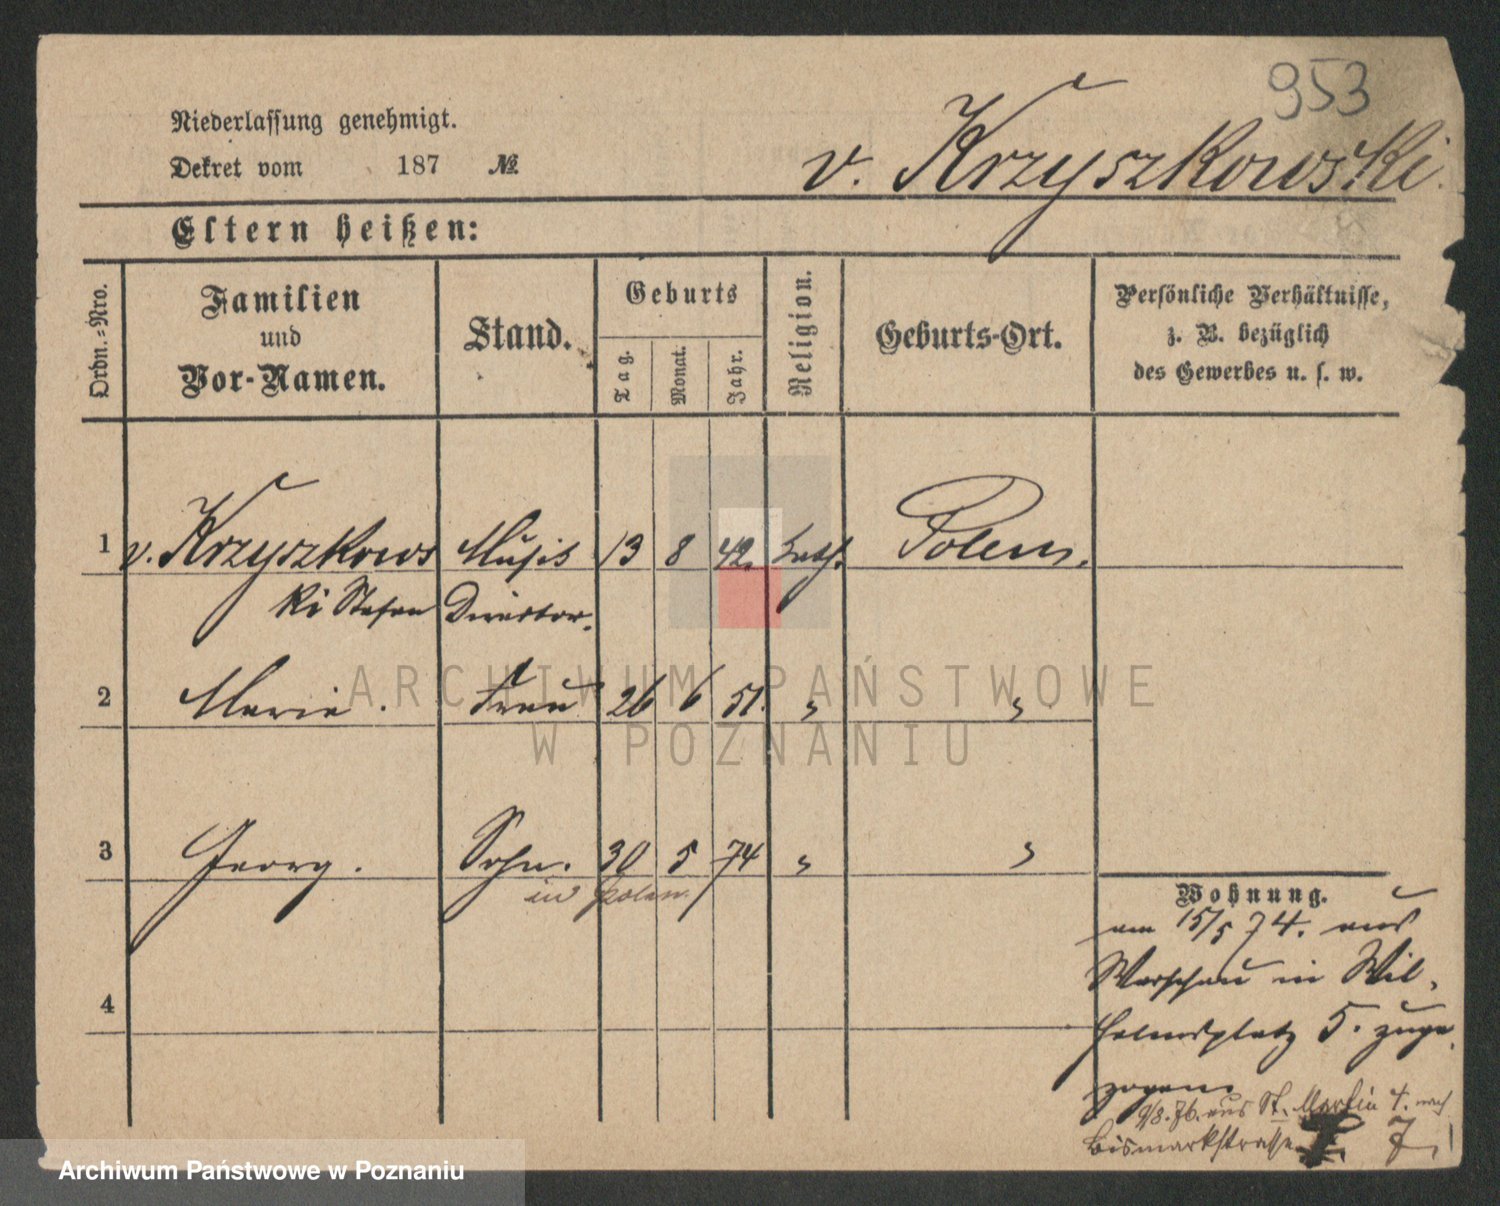 953
Niederlassung genehmigt.
Dekret vom 187 №
v. Krzyszkowski.
Eltern heißen:
Ordn.-Nro.
Familien und Vor-Namen.
Stand.
Geburts
Tag.
Monat.
Jahr.
Religion.
Geburts-Ort.
Persönliche Verhältnisse,
z. B. bezüglich
des Gewerbes u. s. w.
1 v. Krzyszkows Musik 13 8 42. kath. Polen.
ki Stefan Director.
2 Marie. Frau 26 6 51. " "
3 Georg. Sohn. 30 5 74 " "
in Polen
4
Wohnung.
am 15/5 74. aus
Warschau in Wil-
helmsplatz 5. zuge-
zogen
9/8. 76. aus St. Martin 4. nach
Bismarkstrasse 7.
ARCHIWUM PAŃSTWOWE
W POZNANIU
Archiwum Państwowe w Poznaniu